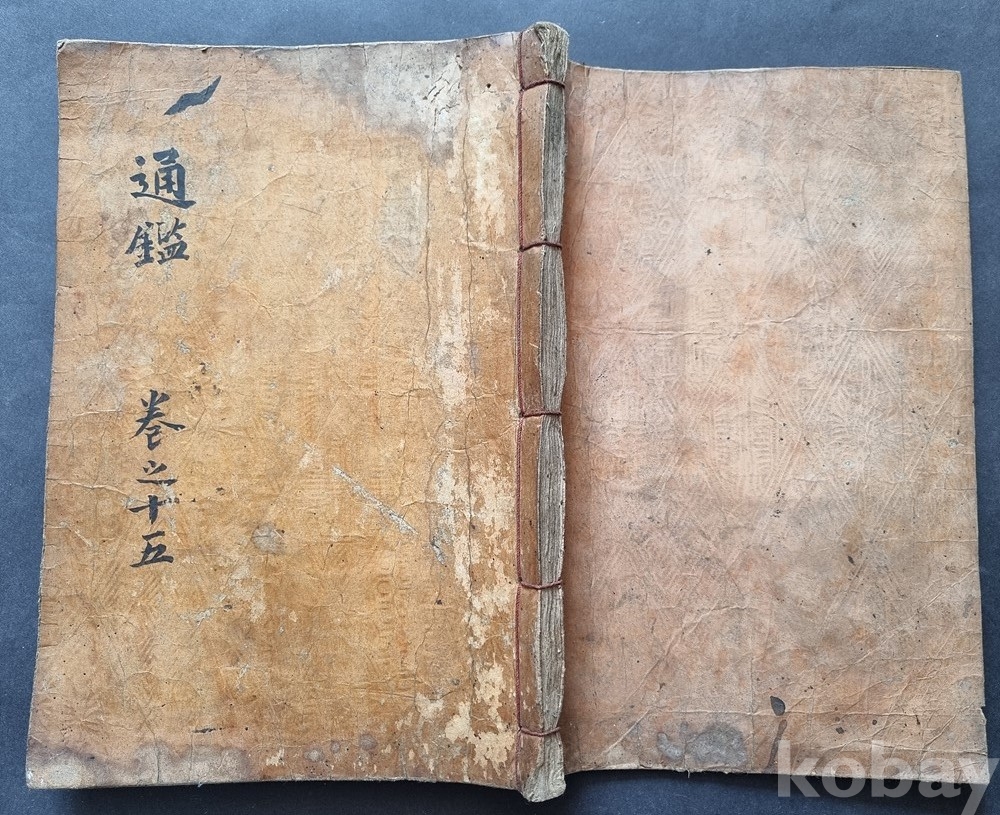 通鑑
卷之十五
kobay